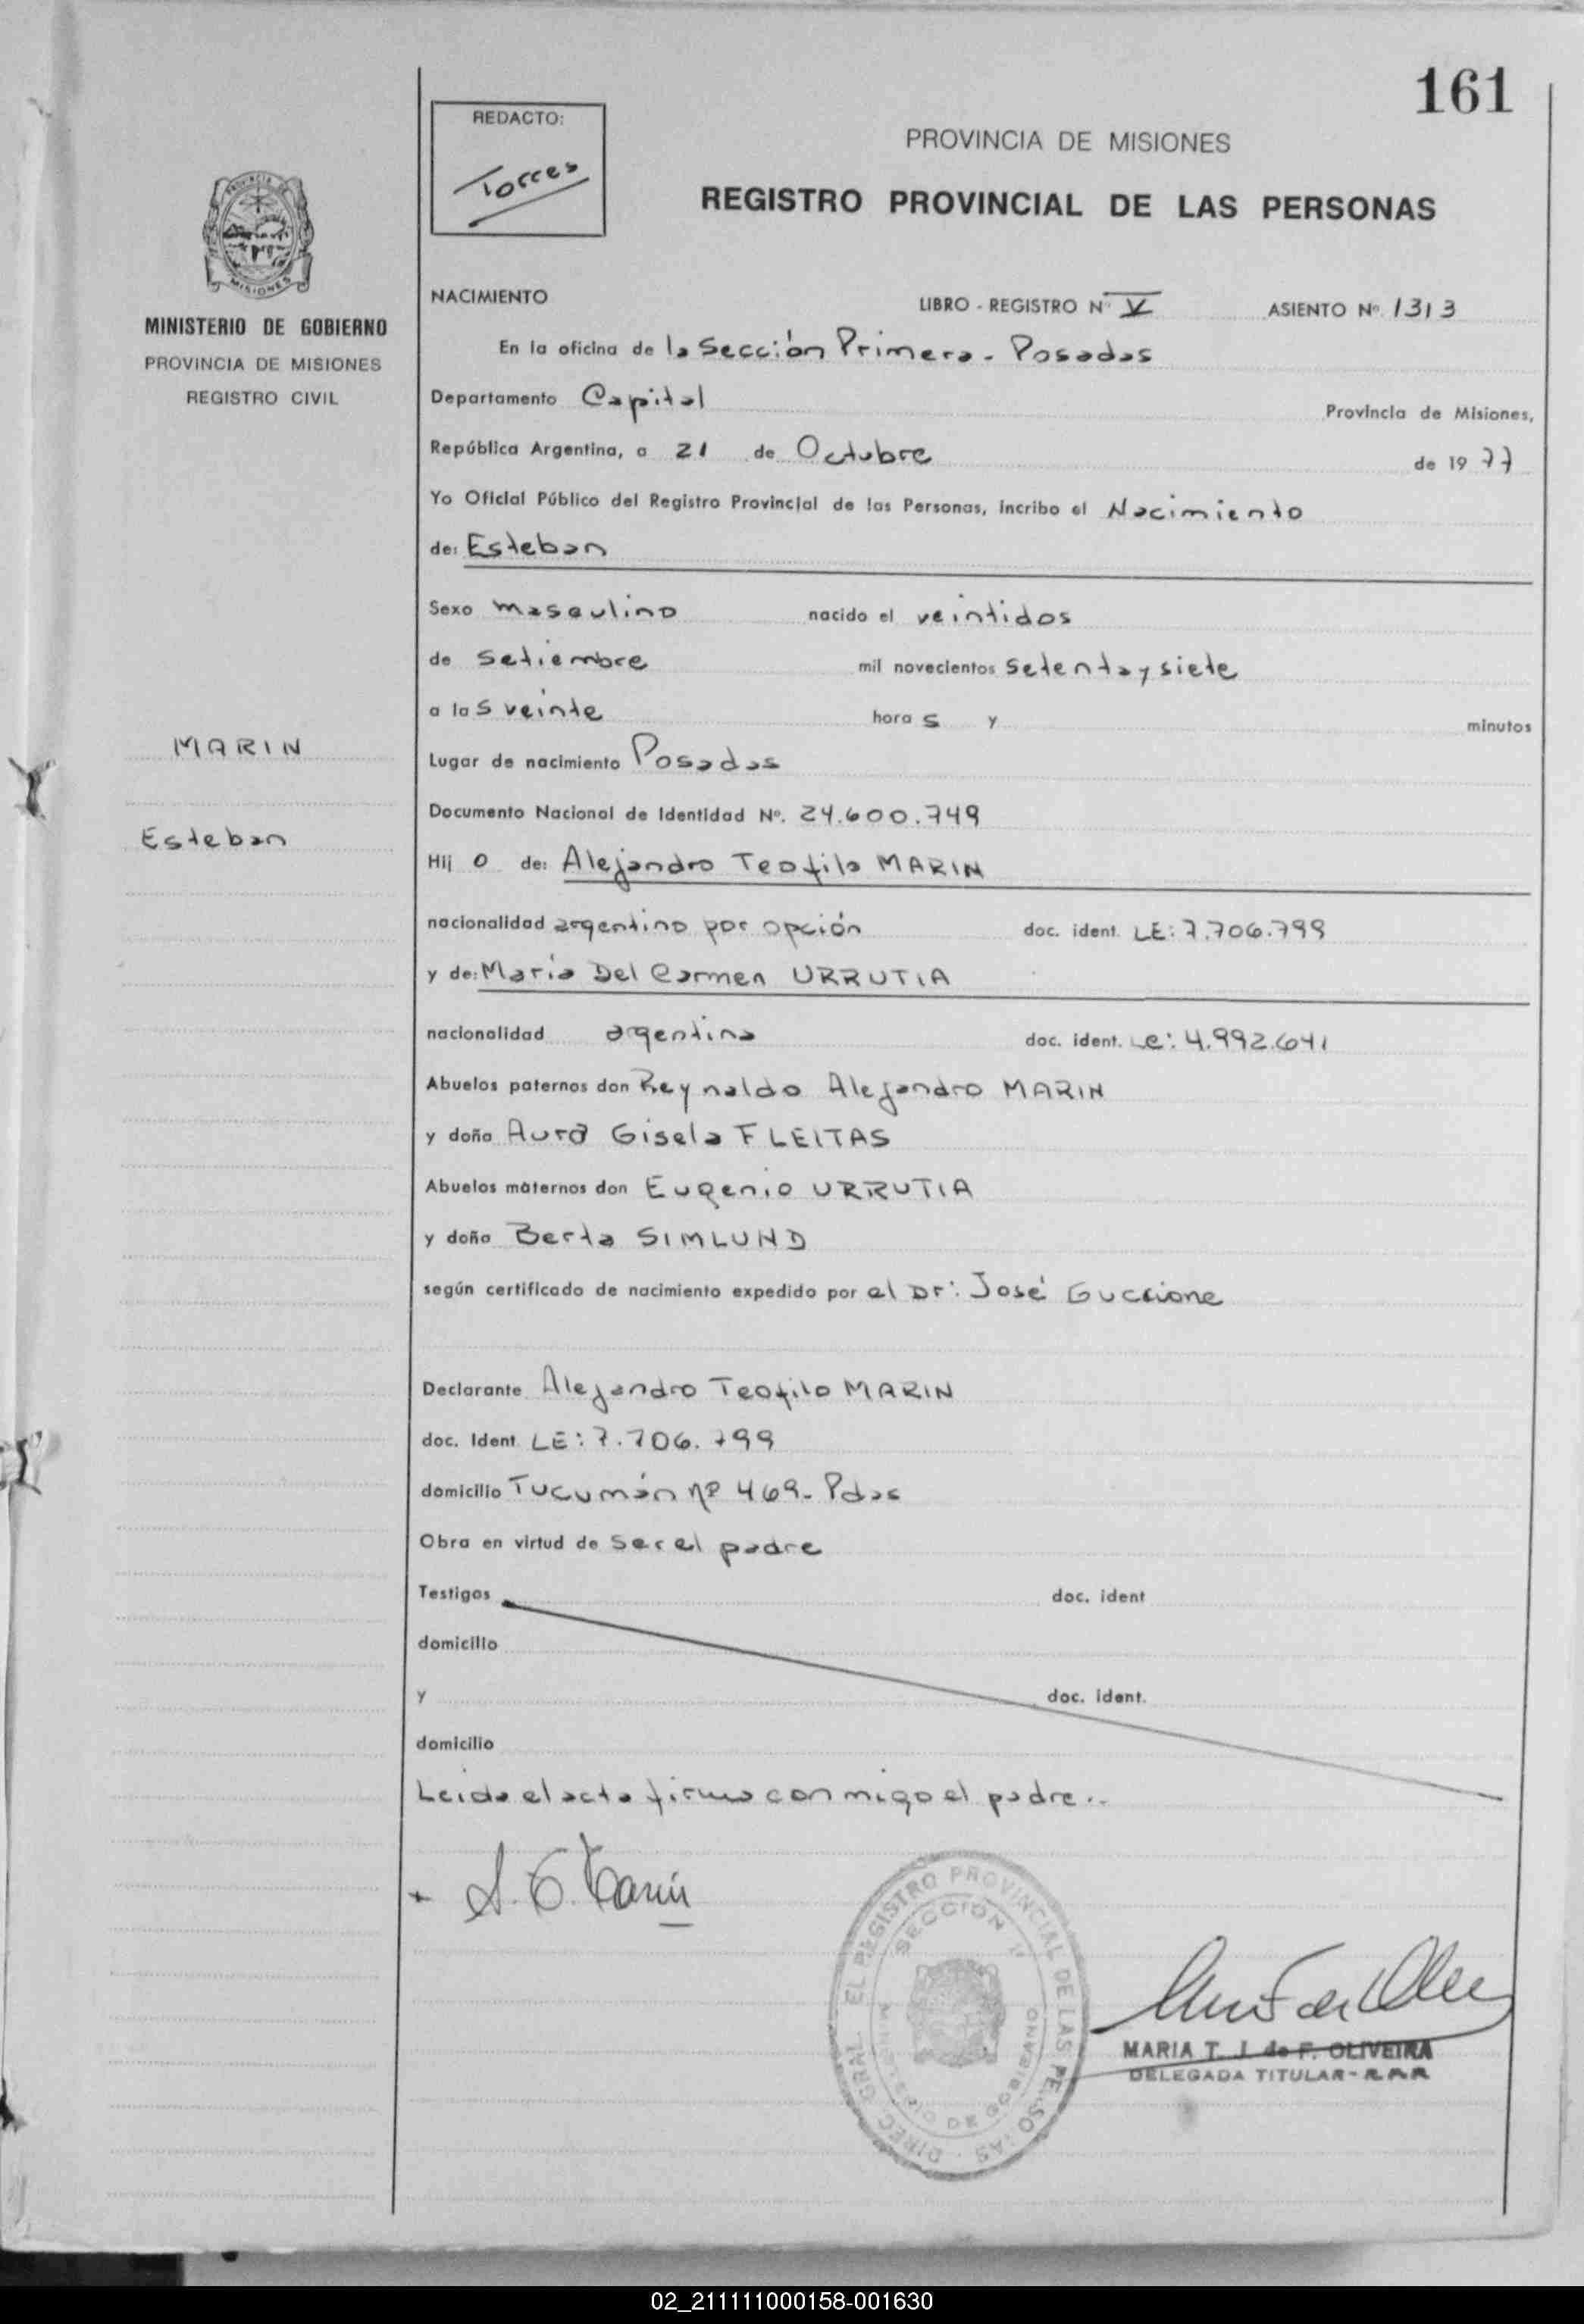 161
REDACTO:
Torres
PROVINCIA DE MISIONES
REGISTRO PROVINCIAL DE LAS PERSONAS
MISIONES
MINISTERIO DE GOBIERNO
PROVINCIA DE MISIONES
REGISTRO CIVIL
NACIMIENTO LIBRO - REGISTRO Nº V ASIENTO Nº 1313
En la oficina de la Sección Primera - Posadas
Departamento Capital Provincia de Misiones,
República Argentina, a 21 de Octubre de 1977
Yo Oficial Público del Registro Provincial de las Personas, incribo el Nacimiento
de: Esteban
Sexo masculino nacido el veintidos
de Setiembre mil novecientos setenta y siete
a las veinte horas y minutos
MARIN
Lugar de nacimiento Posadas
Documento Nacional de Identidad Nº. 24.600.749
Esteban
Hijo de: Alejandro Teofilo MARIN
nacionalidad argentino por opción doc. ident. LE: 7.706.799
y de: María Del Carmen URRUTIA
nacionalidad argentina doc. ident. LC: 4.992.641
Abuelos paternos don Reynaldo Alejandro MARIN
y doña Aura Gisela FLEITAS
Abuelos maternos don Eugenio URRUTIA
y doña Berta SIMLUND
según certificado de nacimiento expedido por el Dr: José Guccione
Declarante Alejandro Teofilo MARIN
doc. Ident. LE: 7.706.799
domicilio Tucumán nº 469 - Pdas
Obra en virtud de ser el padre
Testigos doc. ident
domicilio
y doc. ident.
domicilio
Leida el acta firma conmigo el padre..
A. T. Marin
DIREC. GRAL. EL REGISTRO PROVINCIAL DE LAS PERSONAS
SECCIÓN 1ª
MINISTERIO DE GOBIERNO
MARIA T. J. de F. OLIVEIRA
DELEGADA TITULAR - R.P.P.
02_211111000158-001630